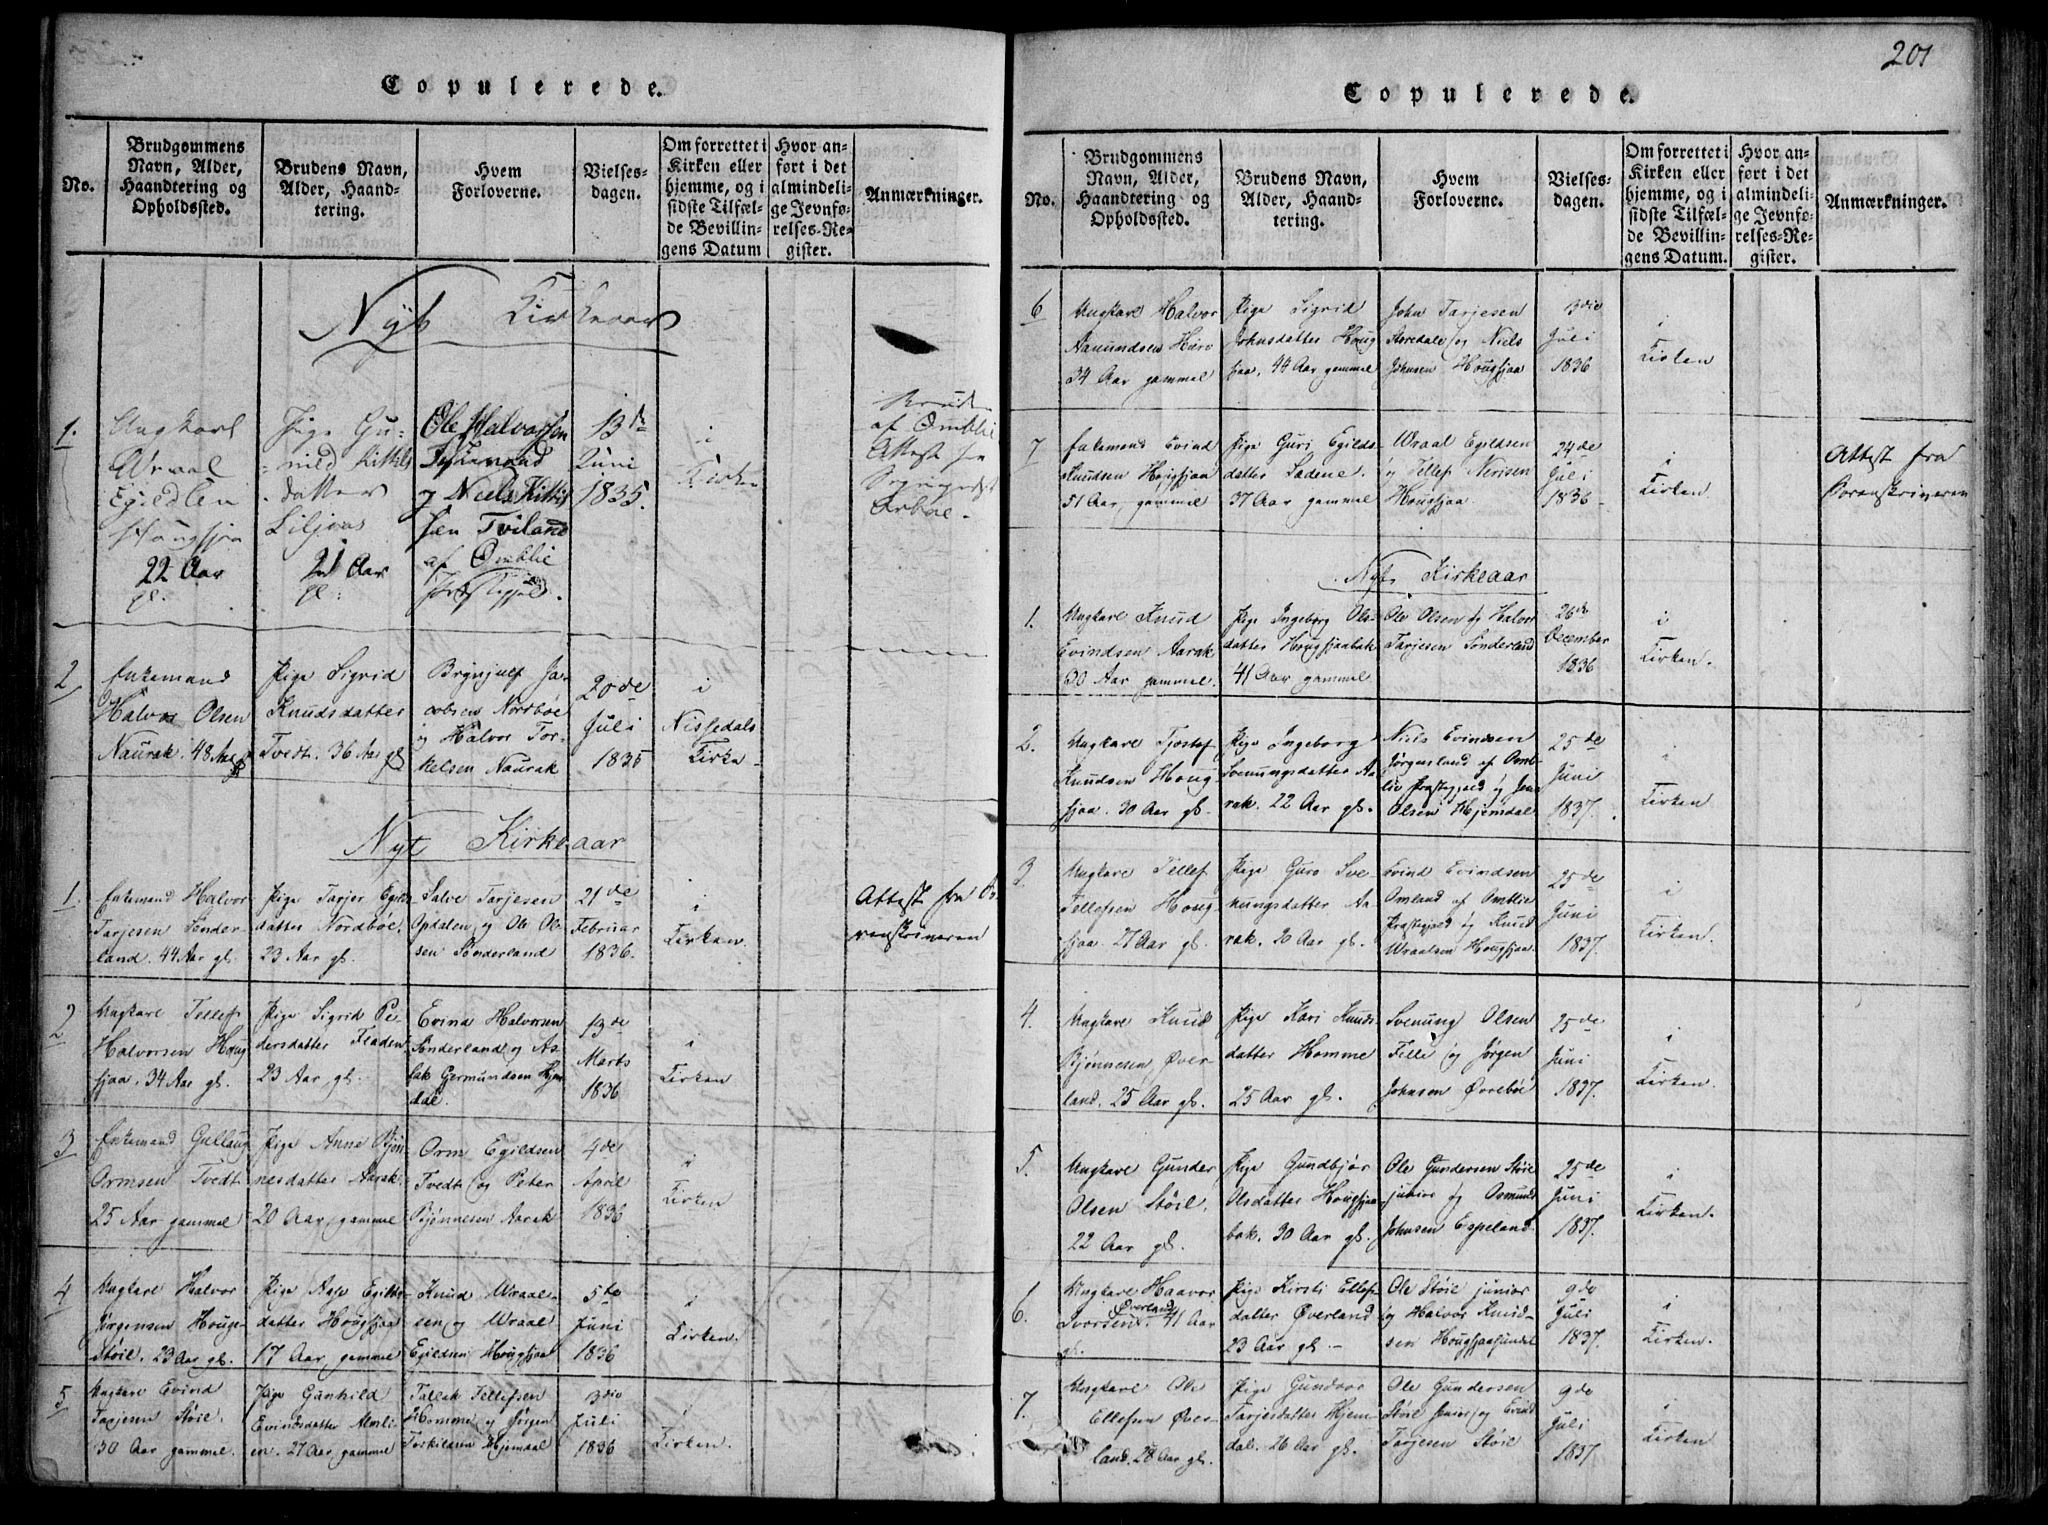 Copulerede.
No.
Brudgommens
Navn, Alder,
Haandtering og
Opholdssted.
Brudens Navn,
Alder, Haand-
tering.
Hvem
Forloverne.
Vielses-
dagen.
Om forrettet i
Kirken eller
hjemme, og i
sidste Tilfæl-
de Bevillin-
gens Datum
Hvor an-
ført i det
almindeli-
ge Jevnfø-
relses-Re-
gister.
Anmærkninger.
Nyt Kirkeaar
1.
Ungkarl
Wraal
Egildsen
Hougsjaa
22 Aar
gl.
Pige Gu-
nild Kittils
datter
Liljons
21 Aar
gl:
Ole Halvorsen
og Niels Kittil
sen Tviland
af Omblie
Præstegjeld.
13de
Juni
1835.
i
Kirken
af Omblie
Attest fra
2
Enkemand
Halvor Olsen
Naurak. 48 Aar gl
Pige Sigrid
Knudsdatter
Tvedt. 36 Aar gl
Brynjulf Ja-
cobsen Nordbøe
og Halvor Tor-
kelsen Naurak
20de
Juli
1835
i
Nissedals
Kirke
Nyt Kirkeaar
1.
Enkemand Halvor
Tarjesen Sønder-
land. 44 Aar gl.
Pige Tarjer Egilds
datter Nordbøe.
23 Aar gl.
Salve Tarjesen
Opdalen og Ole Ol-
sen Sønderland
21de
Februar
1836.
i
Kirken.
Attest fra So-
renskriveren
2
Ungkarl Tellef
Halvorsen Houg-
sjaa. 34 Aar gl.
Pige Sigrid Pe-
dersdatter Fladen
23 Aar gl.
Evind Halvorsen
Sønderland og As-
lak Germundsen Hjem
dal.
13de
Marts
1836
i
Kirken
3
Enkemand Gullaug
Ormsen Tvedt
25 Aar gammel
Pige Anne Bjøn-
nesdatter Aarak
20 Aar gammel
Orm Egildsen
Tvedt og Peter
Bjønnesen Aarak
4de
April
1836
i
Kirken
4
Ungkarl Halvor
Jørgensen Houge-
støil. 23 Aar gl.
Pige Aase Egilds-
datter Hougsjaa
17 Aar gammel
Knud Wraal-
sen og Wraal
Egildsen Hougsjaa
5te
Juni
1836
i
Kirken.
5
Ungkarl Evind
Tarjesen Støil.
30 Aar gammel.
Pige Gunhild
Evindsdatter Almli-
en. 27 Aar gammel
Tallek Tellefsen
Homme og Jørgen
Torkildsen Hjemdal
3die
Juli
1836
i
Kirken.
201
Copulerede.
No.
Brudgommens
Navn, Alder,
Haandtering og
Opholdssted.
Brudens Navn,
Alder, Haand-
tering.
Hvem
Forloverne.
Vielses-
dagen.
Om forrettet i
Kirken eller
hjemme, og i
sidste Tilfæl-
de Bevillin-
gens Datum.
Hvor an-
ført i det
almindeli-
ge Jevnfø-
relses-Re-
gister.
Anmærkninger.
6
Ungkarl Halvor
Aamundsen
34 Aar gammel
Pige Sigrid
Johnsdatter Houg
sjaa. 44 Aar gammel
John Tarjesen
Storedale og Niels
Johnsen Hougsjaa
3die
Juli
1836
i
Kirken
7
Enkemand Evind
Knudsen Hougsjaa
51 Aar, gammel
Pige Guri Egilds-
datter Ladene.
37 Aar gammel
Wraal Egildsen
og Tellef Nerisen
Hougsjaa.
24de
Juli
1836
i
Kirken
Attest fra
Sorenskriveren
Nyt Kirkeaar
1.
Ungkarl Knud
Evindsen Aarak
30 Aar gammel.
Pige Ingeborg Ols-
datter Hougsjaabak
41 Aar gammel
Ole Olsen og Halvor
Tarjesen Sønderland
26de
December
1836
i
Kirken.
2.
Ungkarl Tjostof
Knudsen Houg-
sjaa. 30 Aar gl.
Pige Ingeborg
Svenungsdatter Aa-
rak. 22 Aar gl.
Niels Evindsen
Jørgensland af Om-
blie Præstegjeld og Jens
Olsen Hjemdal
25de
Juni
1837.
i
Kirken
3.
Ungkarl Tellef
Tellefsen Houg-
sjaa. 27 Aar gl.
Pige Guro Sve
nungsdatter Aa-
rak. 20 Aar gl.
Evind Evindsen
Omland af Omblie
Præstegjeld og Knud
Wraalsen Hougsjaa
25de
Juni
1837.
i
Kirken.
4.
Ungkarl Knud
Bjønnesen Øver-
land. 25 Aar gl.
Pige Kari Knuds-
datter Homme
25 Aar gl.
Svenung Olsen
Felle og Jørgen
Johnsen Øvrebøe
25de
Juni
1837.
i
Kirken.
5.
Ungkarl Gunder
Olsen Støil.
22 Aar gl.
Pige Gundbjør
Olsdatter Hougsjaa-
bak. 30 Aar gl.
Ole Gundersen Støil
junior og Osmund
Johnsen Espeland.
25de
Juni
1837.
i
Kirken.
6.
Ungkarl Haavor
Iversen Øverland 41 Aar
gl.
Pige Kirsti Ellefs-
datter Øverland
23 Aar gl. -
Ole Støil junior
og Halvor Knud-
sen Hougsjaasundet
9de
Juli
1837.
i
Kirken.
7.
Ungkarl Ole
Ellefsen Øver-
land. 28 Aar gl.
Pige Gundvor
Tarjesdatter Hjem-
dal. 26 Aar gl.
Ole Gundersen
Støil junior og Evind
Tarjesen Støil
9de
Juli
1837.
i
Kirken.